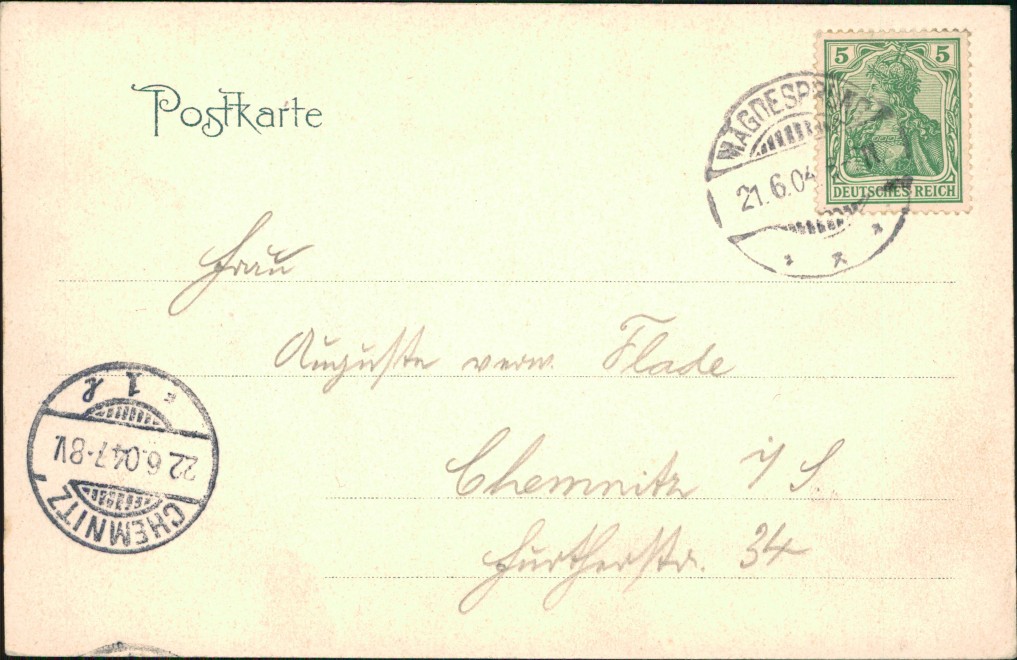 Postkarte
5 5
DEUTSCHES REICH
MÄGDESPRUNG
21.6.04
Frau
Auguste verw. Flade
Chemnitz i/S
Fürtherstr. 34
1 k
22.6.04.7-8V.
CHEMNITZ